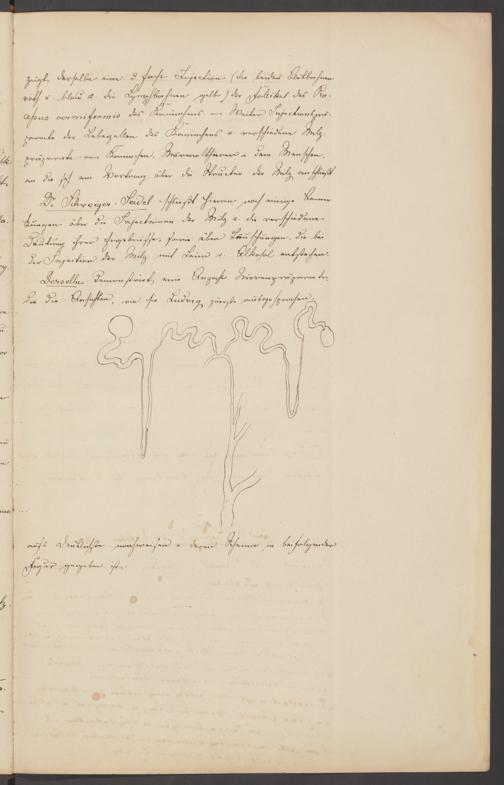 zeigt derselbe eine 3 fache Injection (die beiden Blutbahnen
roth u. blau u. die Lymphbahnen gelb) der Follikel des Pro-
cessus vermiformis des Kaninchens. Weiter Injectionsprä-
parate der Lebergallen des Kaninchens u verschiedene Milz-
präparate vom Kaninchen, u dem Menschen,
an die sich ein Vortrag über die Structur der Milz anschließt
Dr. Schweiger-Seidel schließt hieran noch einige Bemer-
kungen über die Injectionen der Milz u. die verschiedene
Deutung ihrer Ergebnisse, sowie über Täuschungen, die bei
der Injection der Milz mit Leim u. Alkohol entstehen.
Derselbe demonstrirt eine Anzahl Nierenpräparate,
die die Ansichten, wie sie Ludwig zuerst ausgesprochen,
aufs Deutlichste nachweisen u deren Schema in beifolgender
Figur gegeben ist.